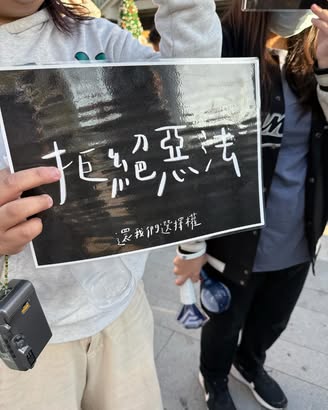 拒絕惡法
還我們選擇權